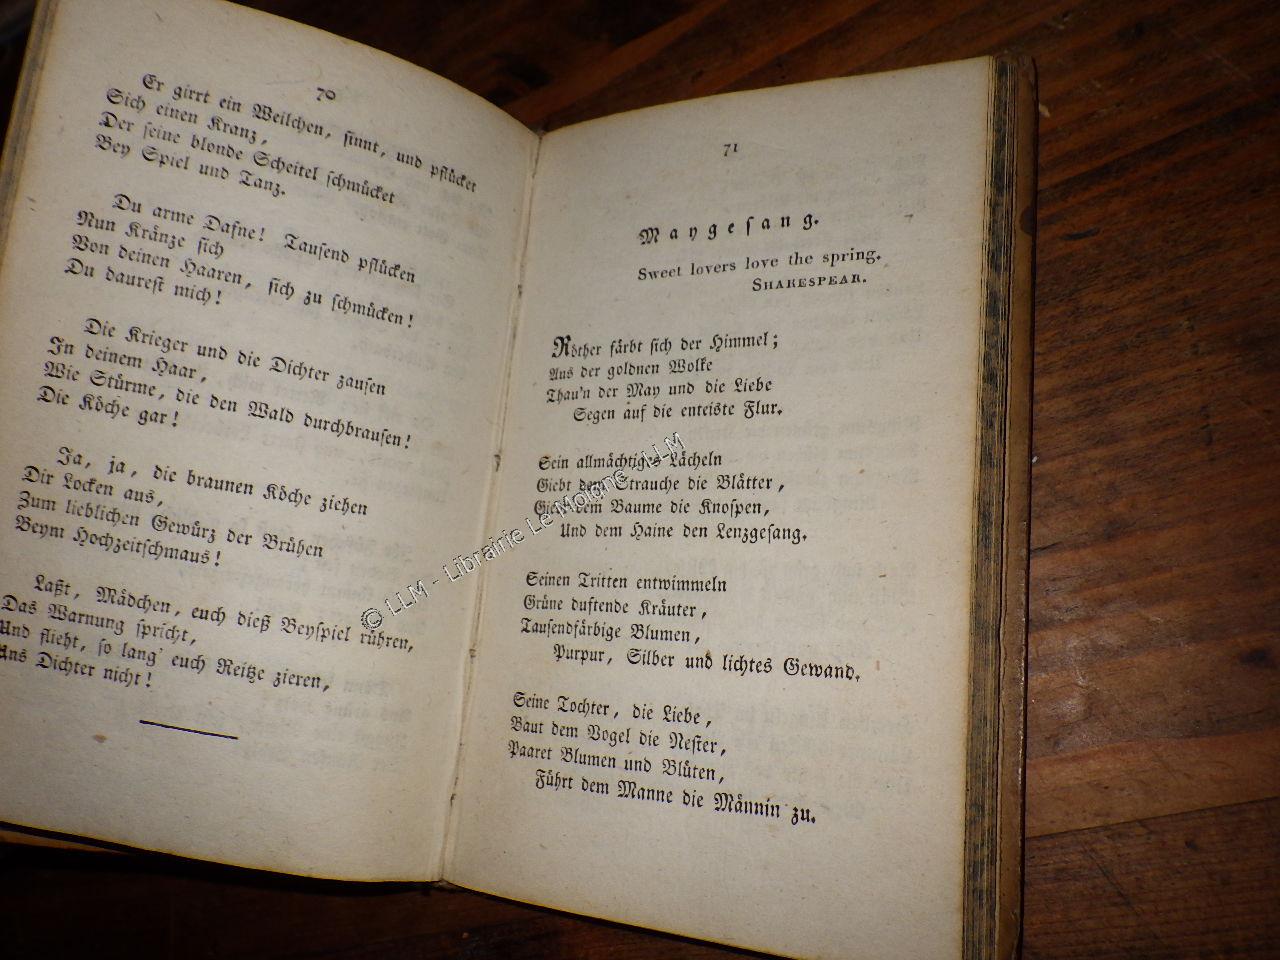 70
Er girrt ein Weilchen, sinnt, und pflücket
Sich einen Kranz,
Der seine blonde Scheitel schmücket
Bey Spiel und Tanz.
Du arme Dafne! Tausend pflücken
Nun Kränze sich
Von deinen Haaren, sich zu schmücken!
Du daurest mich!
Die Krieger und die Dichter zausen
In deinem Haar,
Wie Stürme, die den Wald durchbrausen!
Die Köche gar!
Ja, ja, die braunen Köche ziehen
Dir Locken aus,
Zum lieblichen Gewürz der Brühen
Beym Hochzeitschmaus!
Laßt, Mädchen, euch dieß Beyspiel rühren,
Das Warnung spricht,
Und flieht, so lang' euch Reitze zieren,
Uns Dichter nicht!
71
Maygesang.
Sweet lovers love the spring.
SHAKESPEAR.
Röther färbt sich der Himmel;
Aus der goldnen Wolke
Thau'n der May und die Liebe
Segen auf die enteiste Flur.
Sein allmächtiges Lächeln
Giebt dem Strauche die Blätter,
Giebt dem Baume die Knospen,
Und dem Haine den Lenzgesang.
Seinen Tritten entwimmeln
Grüne duftende Kräuter,
Tausendfärbige Blumen,
Purpur, Silber und lichtes Gewand.
Seine Tochter, die Liebe,
Baut dem Vogel die Nester,
Paaret Blumen und Blüten,
Führt dem Manne die Männin zu.
© LLM - Librairie Le Moïone - LLM